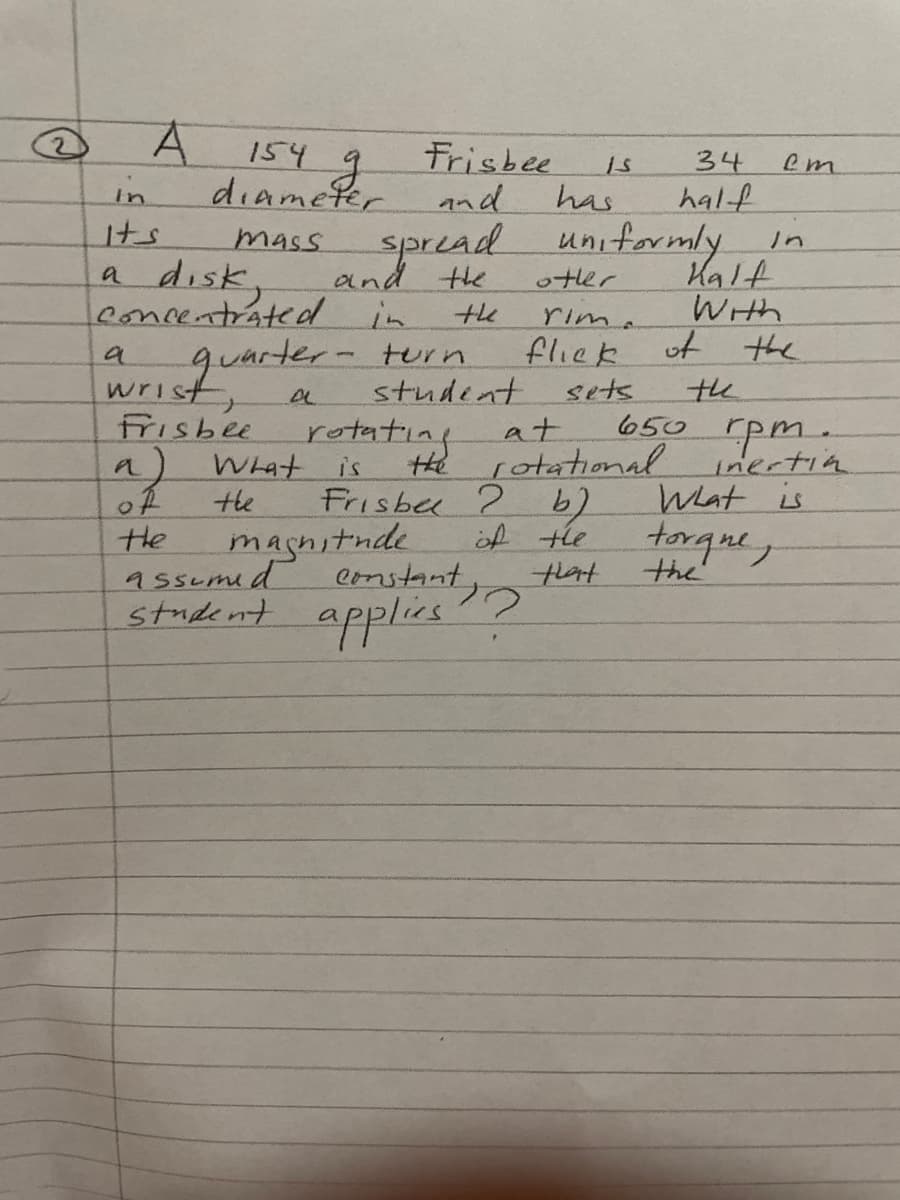 ② A 154 g Frisbee is 34 cm
in diameter and has half
its mass spread uniformly in
a disk, and the other half
concentrated in the rim. With
a quarter-turn flick of the
wrist, a student sets the
Frisbee rotating at 650 rpm.
a) What is the rotational inertia
of the Frisbee? b) What is
the magnitude of the torque,
assumed constant, that the
student applies?